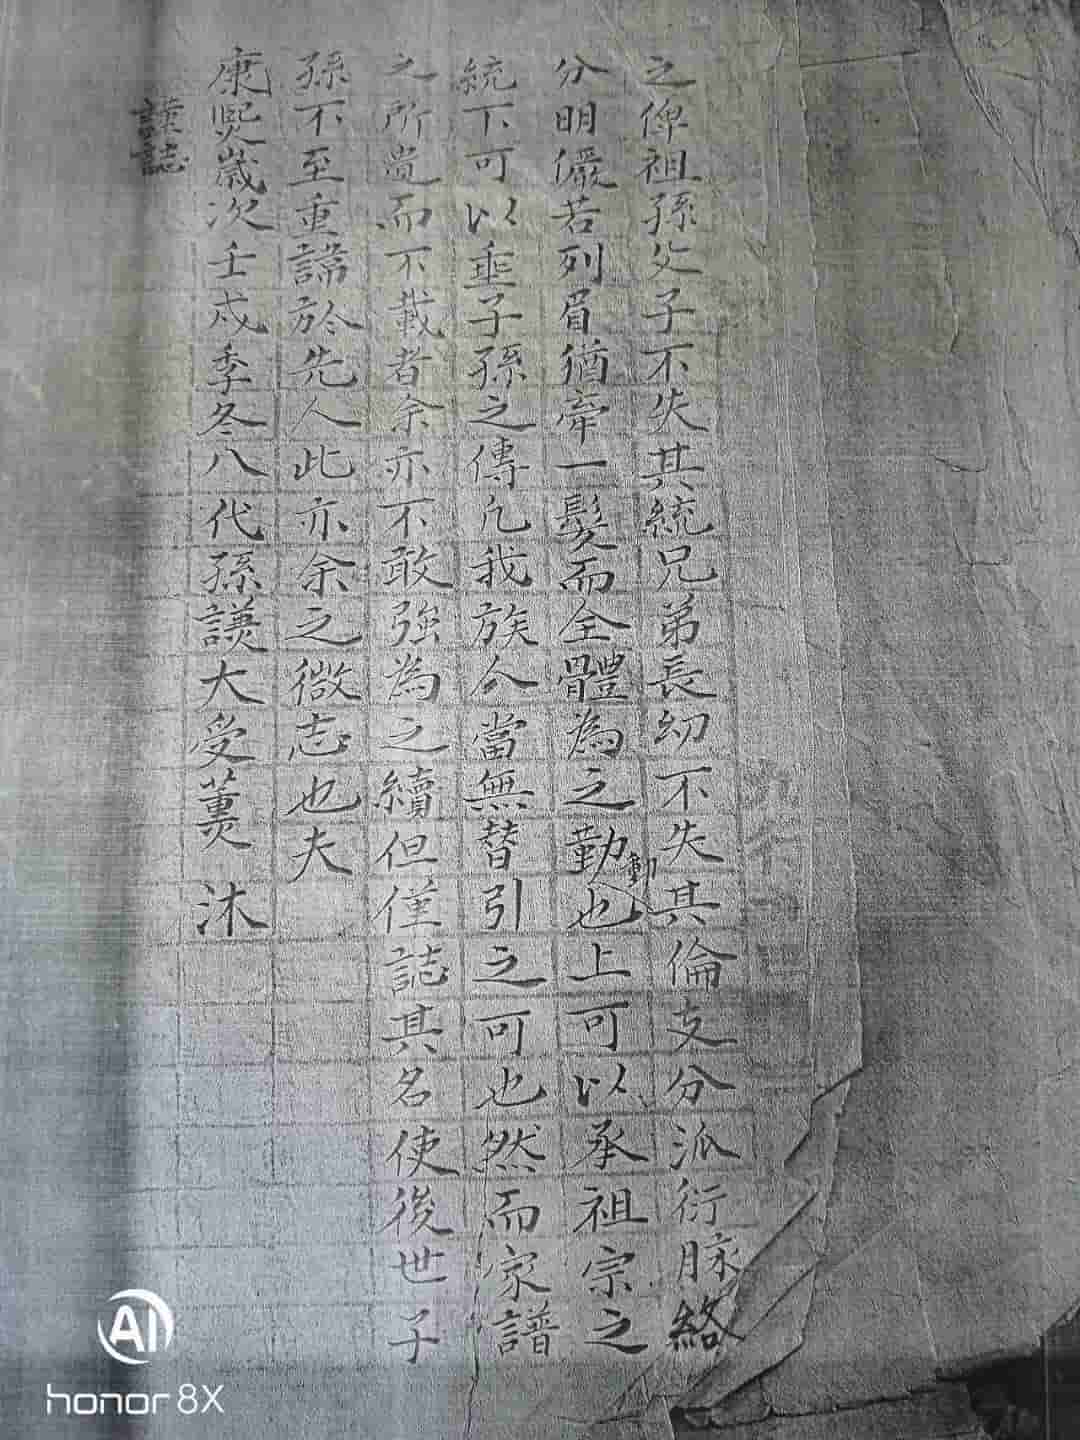 之俾祖孫父子不失其統兄弟長幼不失其倫支分派衍脉絡
分明儼若列眉猶牽一髮而全體為之勤動也上可以承祖宗之
統下可以垂子孫之傳凡我族人當無替引之可也然而家譜
之所覚而不載者余亦不敢強為之續但僅誌其名使後世子
孫不至重諱於先人此亦余之微志也夫
康熙歲次壬戌季冬八代孫謙大受薰沐
謹誌
AI
honor 8X